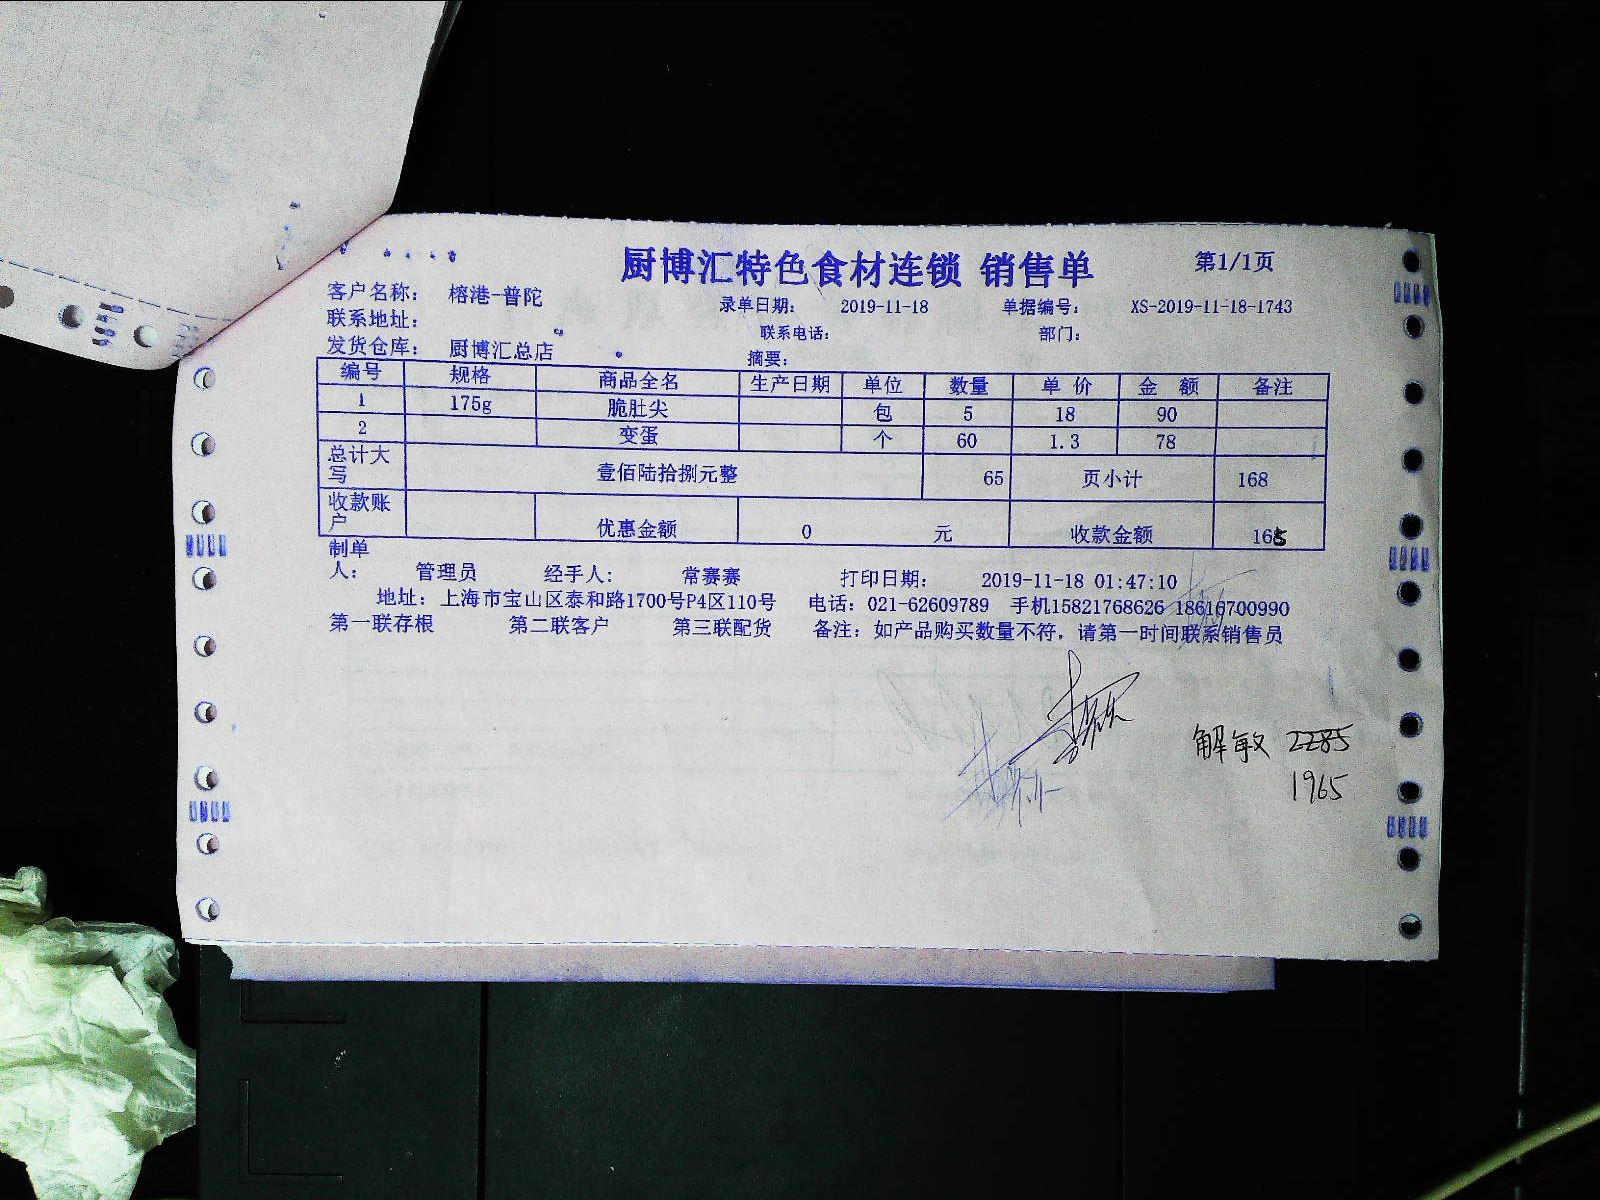 厨博汇特色食材连锁 销售单 第1/1页
客户名称： 榕港-普陀 录单日期： 2019-11-18 单据编号： XS-2019-11-18-1743
联系地址： 联系电话： 部门：
发货仓库： 厨博汇总店 摘要：
编号 规格 商品全名 生产日期 单位 数量 单 价 金 额 备注
1 175g 脆肚尖 包 5 18 90
2 变蛋 个 60 1.3 78
总计大写 壹佰陆拾捌元整 65 页小计 168
收款账户 优惠金额 0 元 收款金额 165
制单人： 管理员 经手人： 常赛赛 打印日期： 2019-11-18 01:47:10
地址：上海市宝山区泰和路1700号P4区110号 电话：021-62609789 手机15821768626 18616700990
第一联存根 第二联客户 第三联配货 备注：如产品购买数量不符，请第一时间联系销售员
解敏 2285
1965